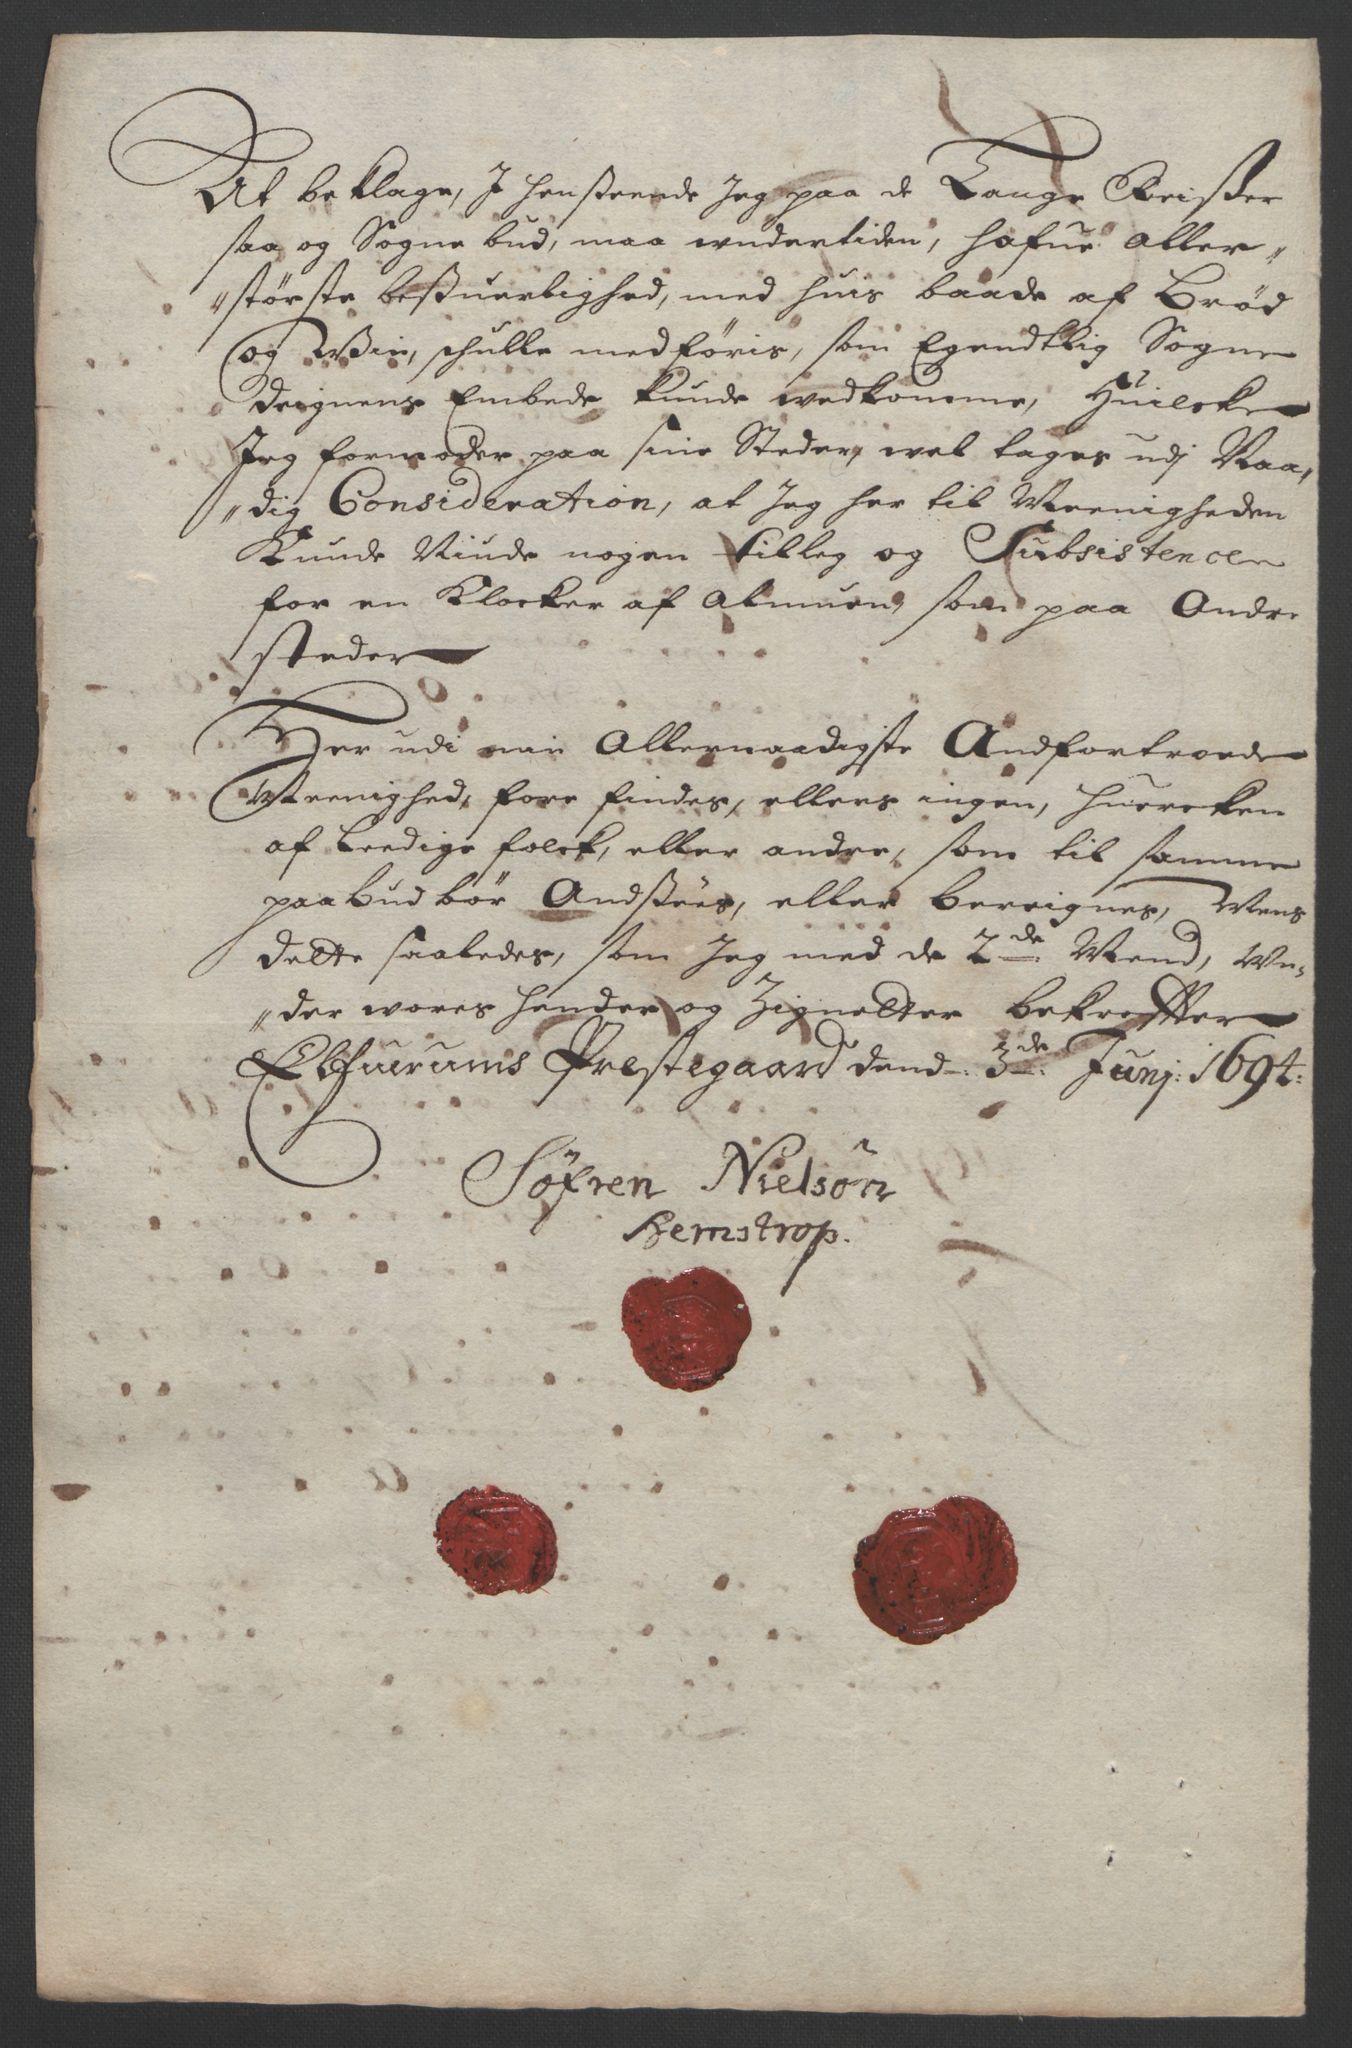 At beklage, I henseende Jeg paa de Lange Reiser
saa og Sognebud, maa wndertiden, hafue aller„
„største besuerlighed, med huis baade af Brød
og Wiin, schulle medføris, som Egendtlig Sogne
deignens Embede kunde wedkomme, Huilcke
Jeg formoder paa sine Steder, wel tages udj Naa„
„dig Consideration, at Jeg her til Meenigheden
Kunde Niude nogen tilleg og Subsistence
for en Klocker af Almuen, som paa Andre
steder
Her udi min Allernaadigste Andfortroede
Meenighed, fore findes, ellers ingen, huercken
af Leedige folck, eller andre, som til samme
paabud bør Andsees, eller bereignes,
dette saaledes, som Jeg med de 2de Mend, Wn„
„der wores hender og Zignetter bekreffter
Elfuerums Prestegaard dend 3de Junj: 1694:
Søfren Nielsøn
Hemstrop.